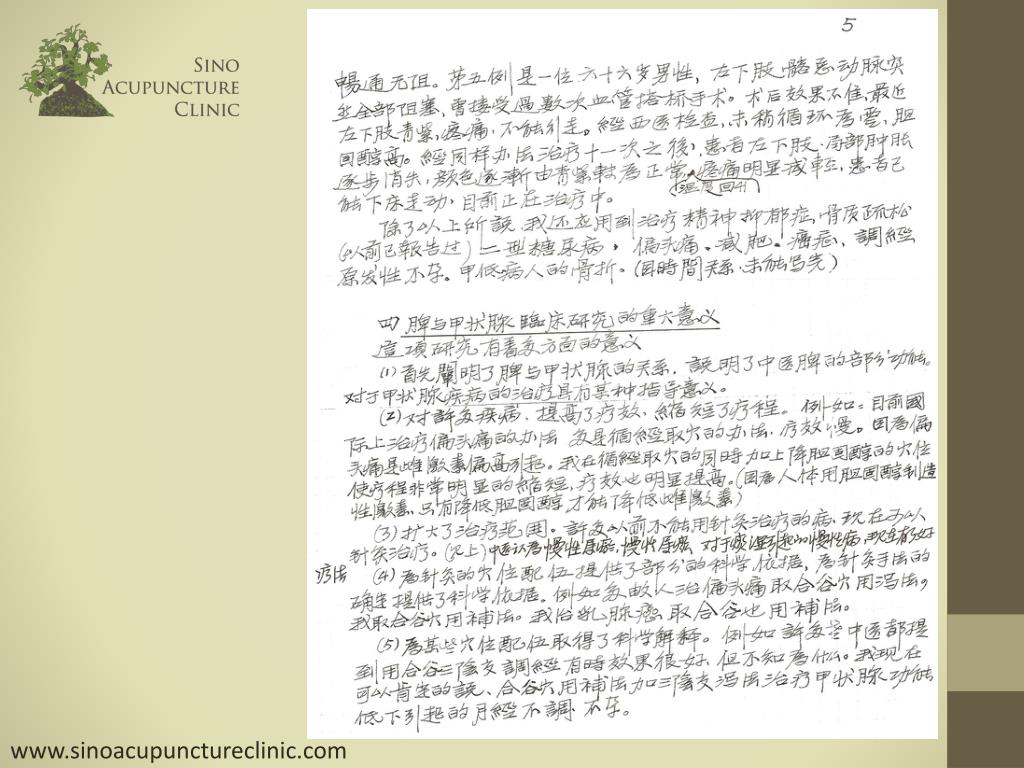 SINO
ACUPUNCTURE
CLINIC
5
暢通无阻。第五例是一位六十六岁男性，左下肢·髂总动脉突
然全部阻塞，曾接受过數次血管搭桥手术。术后效果不佳，最近
左下肢青紫，疼痛，不能引走。經西医检查，末稍循环差，胆
固醇高。經同样办法治疗十一次之後，患者左下肢·局部肿胀
逐步消失，顏色逐漸由青紫轉為正常，疼痛明显减轻，患者已
温度回升
能下床走动，目前正在治疗中。
除了以上所談，我还应用到治疗精神抑郁症，骨质疏松
(以前已報告过) 二型糖尿病，偏头痛。减肥。癌症，調經
原发性不孕。甲低病人的骨折。(因時間关系，未能写完)
四 脾与甲状腺臨床研究的重大意义
這項研究有着多方面的意义
(1) 首先闡明了脾与甲状腺的关系，說明了中医脾的部分功能。
对于甲状腺疾病的治疗具有某种指导意义。
(2) 对許多疾病，提高了疗效，縮短了疗程。例如：目前國
际上治疗偏头痛的办法 多是循經取穴的办法，疗效慢。因為偏
头痛是雌激素偏高引起。我在循經取穴的同時加上降胆固醇的穴位
使疗程非常明显的縮短，疗效也明显提高。(因為人体用胆固醇制造
性激素，只有降低胆固醇，才能降低雌激素)
(3) 扩大了治疗范围。許多以前不能用针灸治疗的病，现在可以
针灸治疗。(见上) 中医认為慢性，慢性，对于痰湿引起的慢性病，现在有好
疗法
(4) 為針灸的穴位配伍提供了部分的科学依据，為针灸手法的
确定提供了科学依据。例如多数人治偏头痛取合谷穴用泻法。
我取合谷穴用補法。我治乳腺癌，取合谷也用補法。
(5) 為某些穴位配伍取得了科学解释。例如許多老中医都提
到用合谷三陰交調經有時效果很好，但不知為什么。我现在
可以肯定的說、合谷穴用補法加三陰交泻法治疗甲状腺功能
低下引起的月經不調 不孕。
www.sinoacupunctureclinic.com